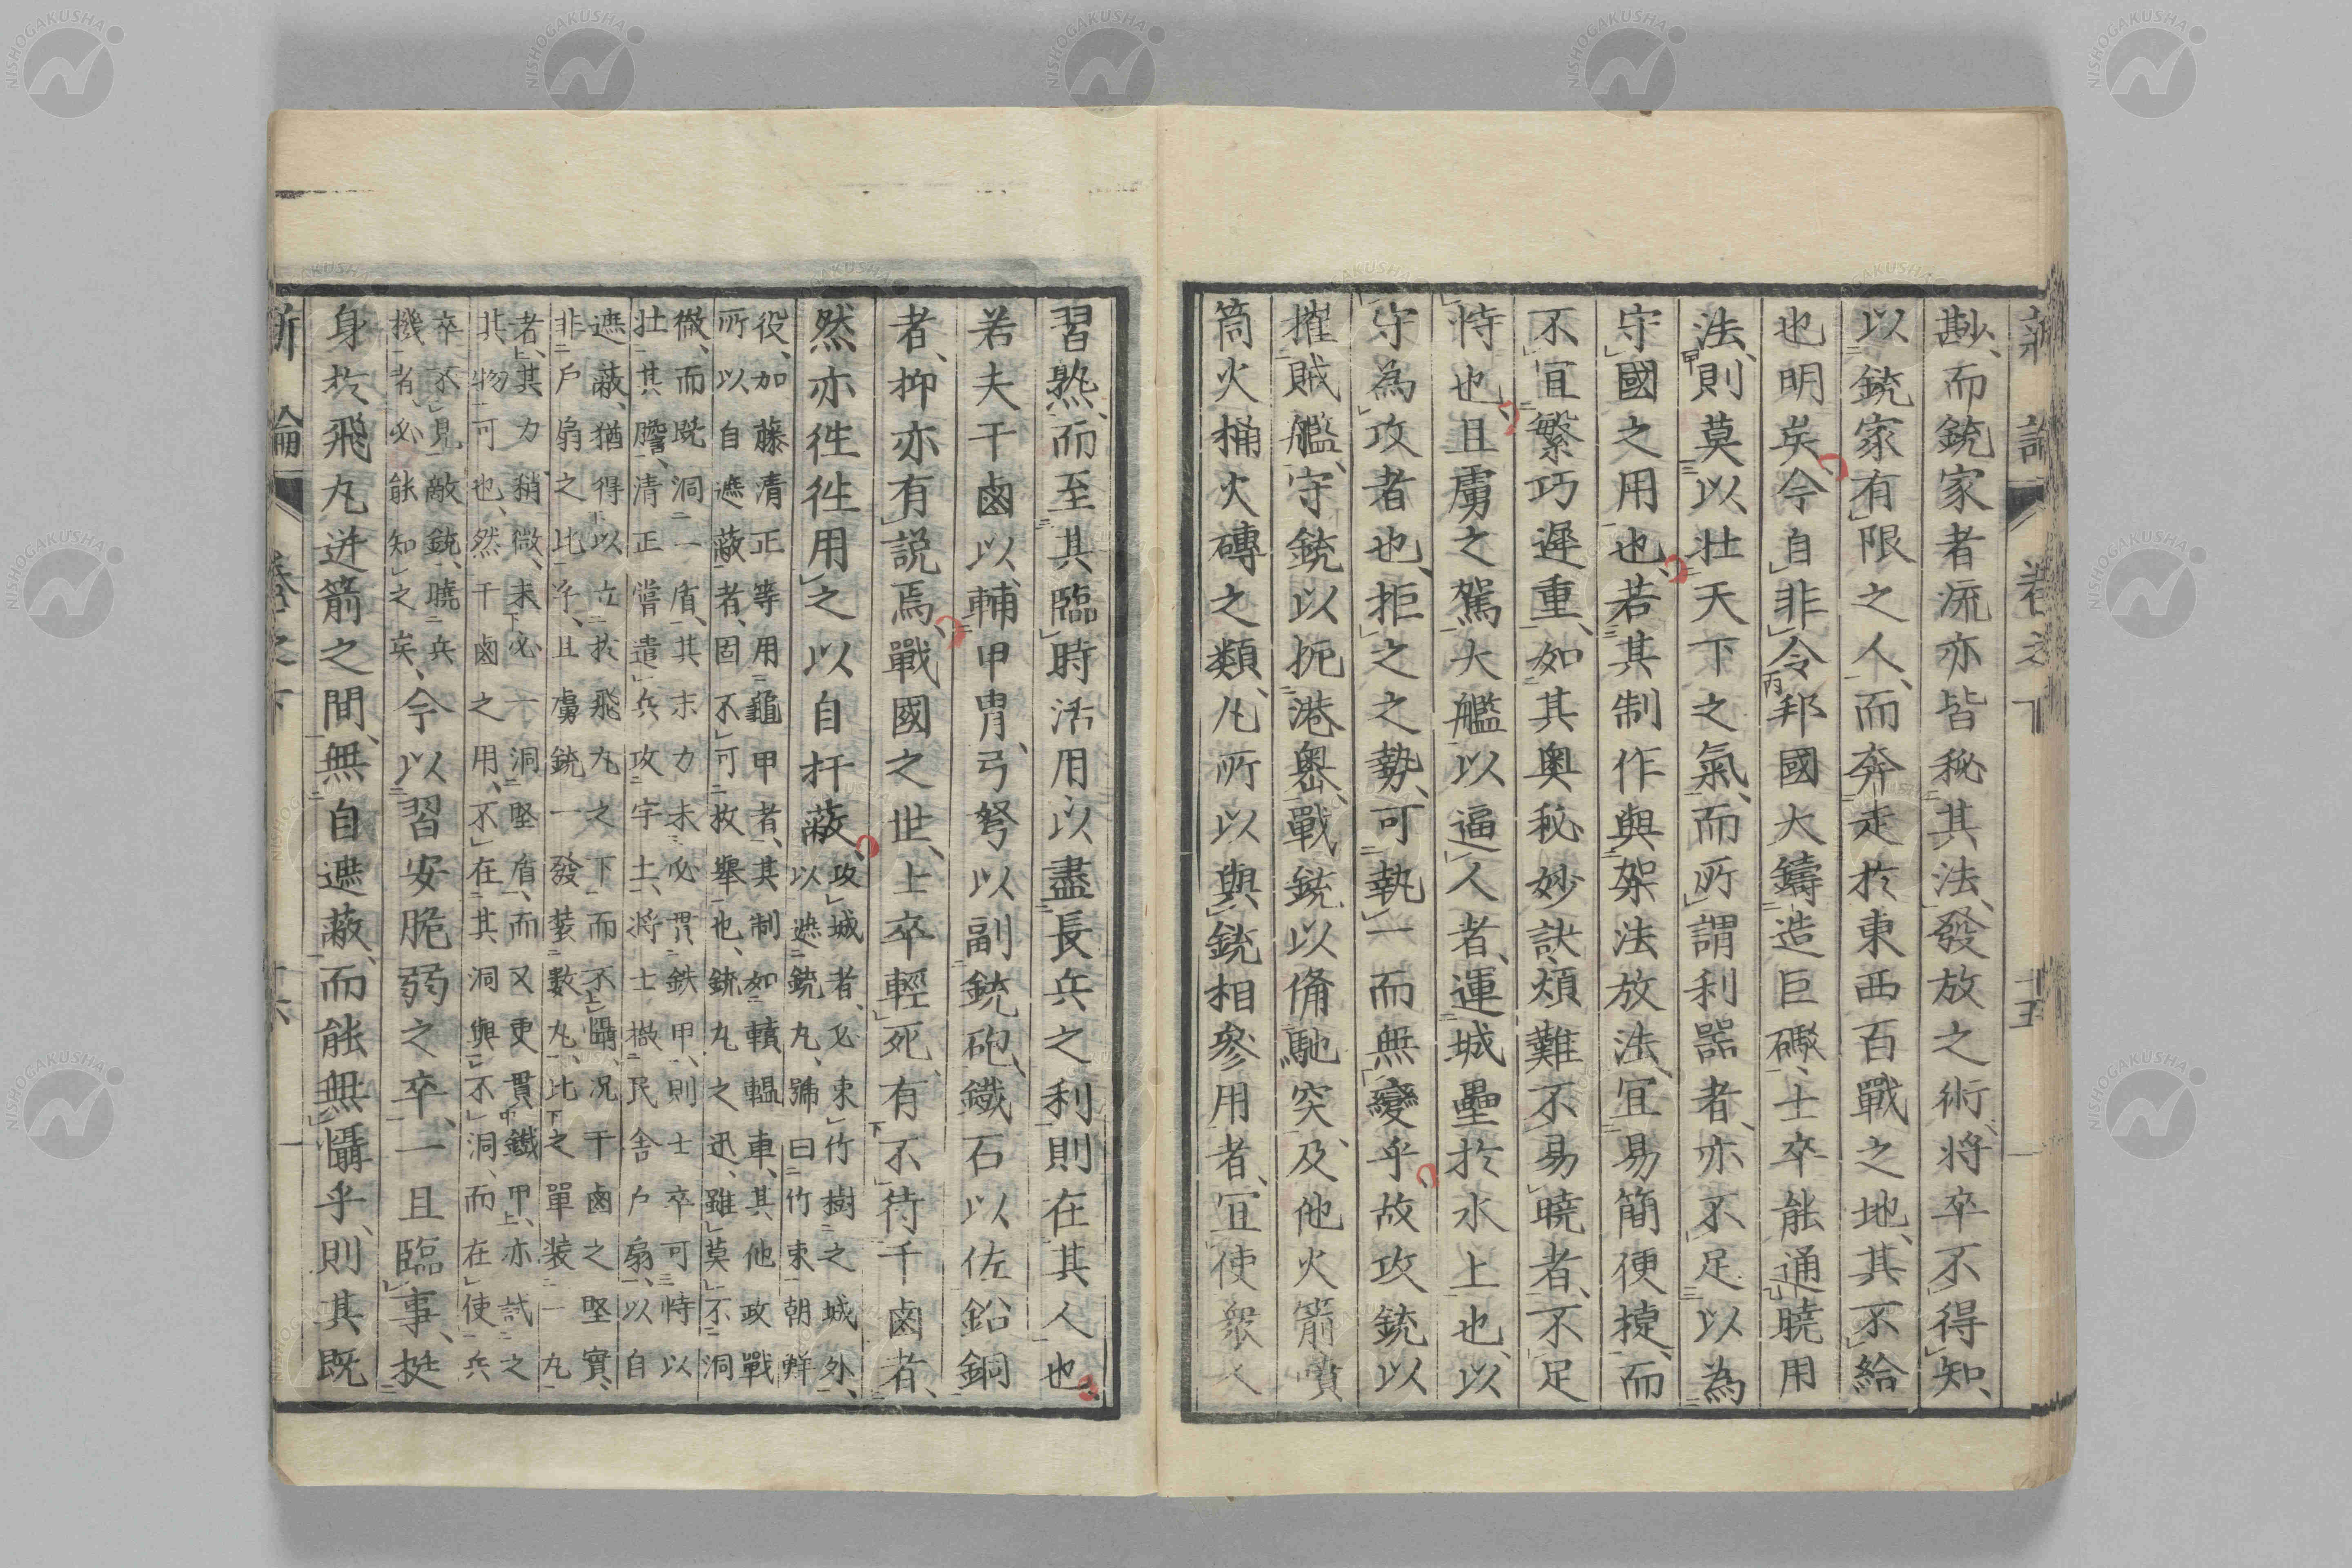 新論 卷之下 十五
尠、而銃家者流亦皆秘其法、發放之術、將卒不得知、
以銃家有限之人、而奔走於東西百戰之地、其不給
也明矣今自非令邦國大鑄造巨礮、士卒能通曉用
法、則莫以壯天下之氣、而所謂利器者、亦不足以為
守國之用也、若其制作與架法放法、宜易簡便捷、而
不宜繁巧遲重、如其奧秘妙訣、煩難不易曉者、不足
恃也且虜之駕大艦以逼人者、運城壘於水上也、以
守為攻者也、拒之之勢、可執一而無變乎故攻銃以
摧賊艦、守銃以扼港嶴、戰銃以備馳突、及他火箭噴
筒火桶火磚之類、凡所以與銃相參用者、宜使衆人
習熟、而至其臨時活用以盡長兵之利則在其人也
若夫干鹵以輔甲冑、弓弩以副銃砲、鐵石以佐鉛銅
者、抑亦有說焉、戰國之世、士卒輕死、有不待干鹵者、
然亦徃徃用之以自扞蔽、
攻城者、必束竹樹之城外、
以遮銃丸、號曰竹束朝鮮
役、加藤清正等用龜甲者、其制如轒轀車、其他攻戰
所以自遮蔽者、固不可枚舉也、銃丸之迅、雖莫不洞
徹、而既洞一盾、其末力未必貫鉄甲、則士卒可恃以
壯其膽、清正嘗遣兵攻宇土、將士撤民舎戶扇、以自
遮蔽、猶得以立於飛丸之下而不懾、况干鹵之堅實、
非戶扇之比乎、且虜銃一發裝數丸、比之單裝一丸
者、其力稍微、未必一洞堅盾、而又更貫鐵甲、亦試之
其物可也、然干鹵之用、不在其洞與不洞、而在使兵
卒不見敵銃、曉兵
機者必能知之矣、
今以習安脆弱之卒、一旦臨事、挺
身於飛丸迸箭之間、無自遮蔽、而能無懾乎、則其既
新論 卷之下 十六
NISHOGAKUSHA